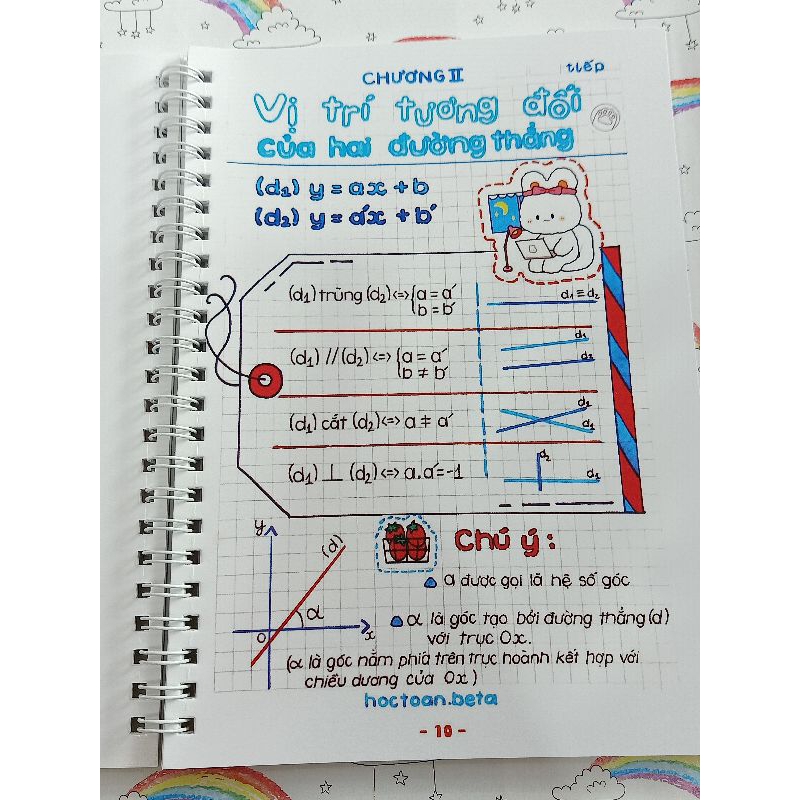 CHƯƠNG II
tiếp
Vị trí tương đối
của hai đường thẳng
(d₁) y = ax + b
(d₂) y = a'x + b'
(d₁) trùng (d₂) <=> { a = a'
b = b'
d₁ ≡ d₂
(d₁) // (d₂) <=> { a = a'
b ≠ b'
d₁
d₂
(d₁) cắt (d₂) <=> a ≠ a'
d₂
d₁
(d₁) ⊥ (d₂) <=> a.a' = -1
d₂
d₁
y
(d)
α
O
x
Chú ý :
a được gọi là hệ số góc
α là góc tạo bởi đường thẳng (d)
với trục Ox.
(α là góc nằm phía trên trục hoành kết hợp với
chiều dương của Ox)
hoctoan.beta
- 10 -